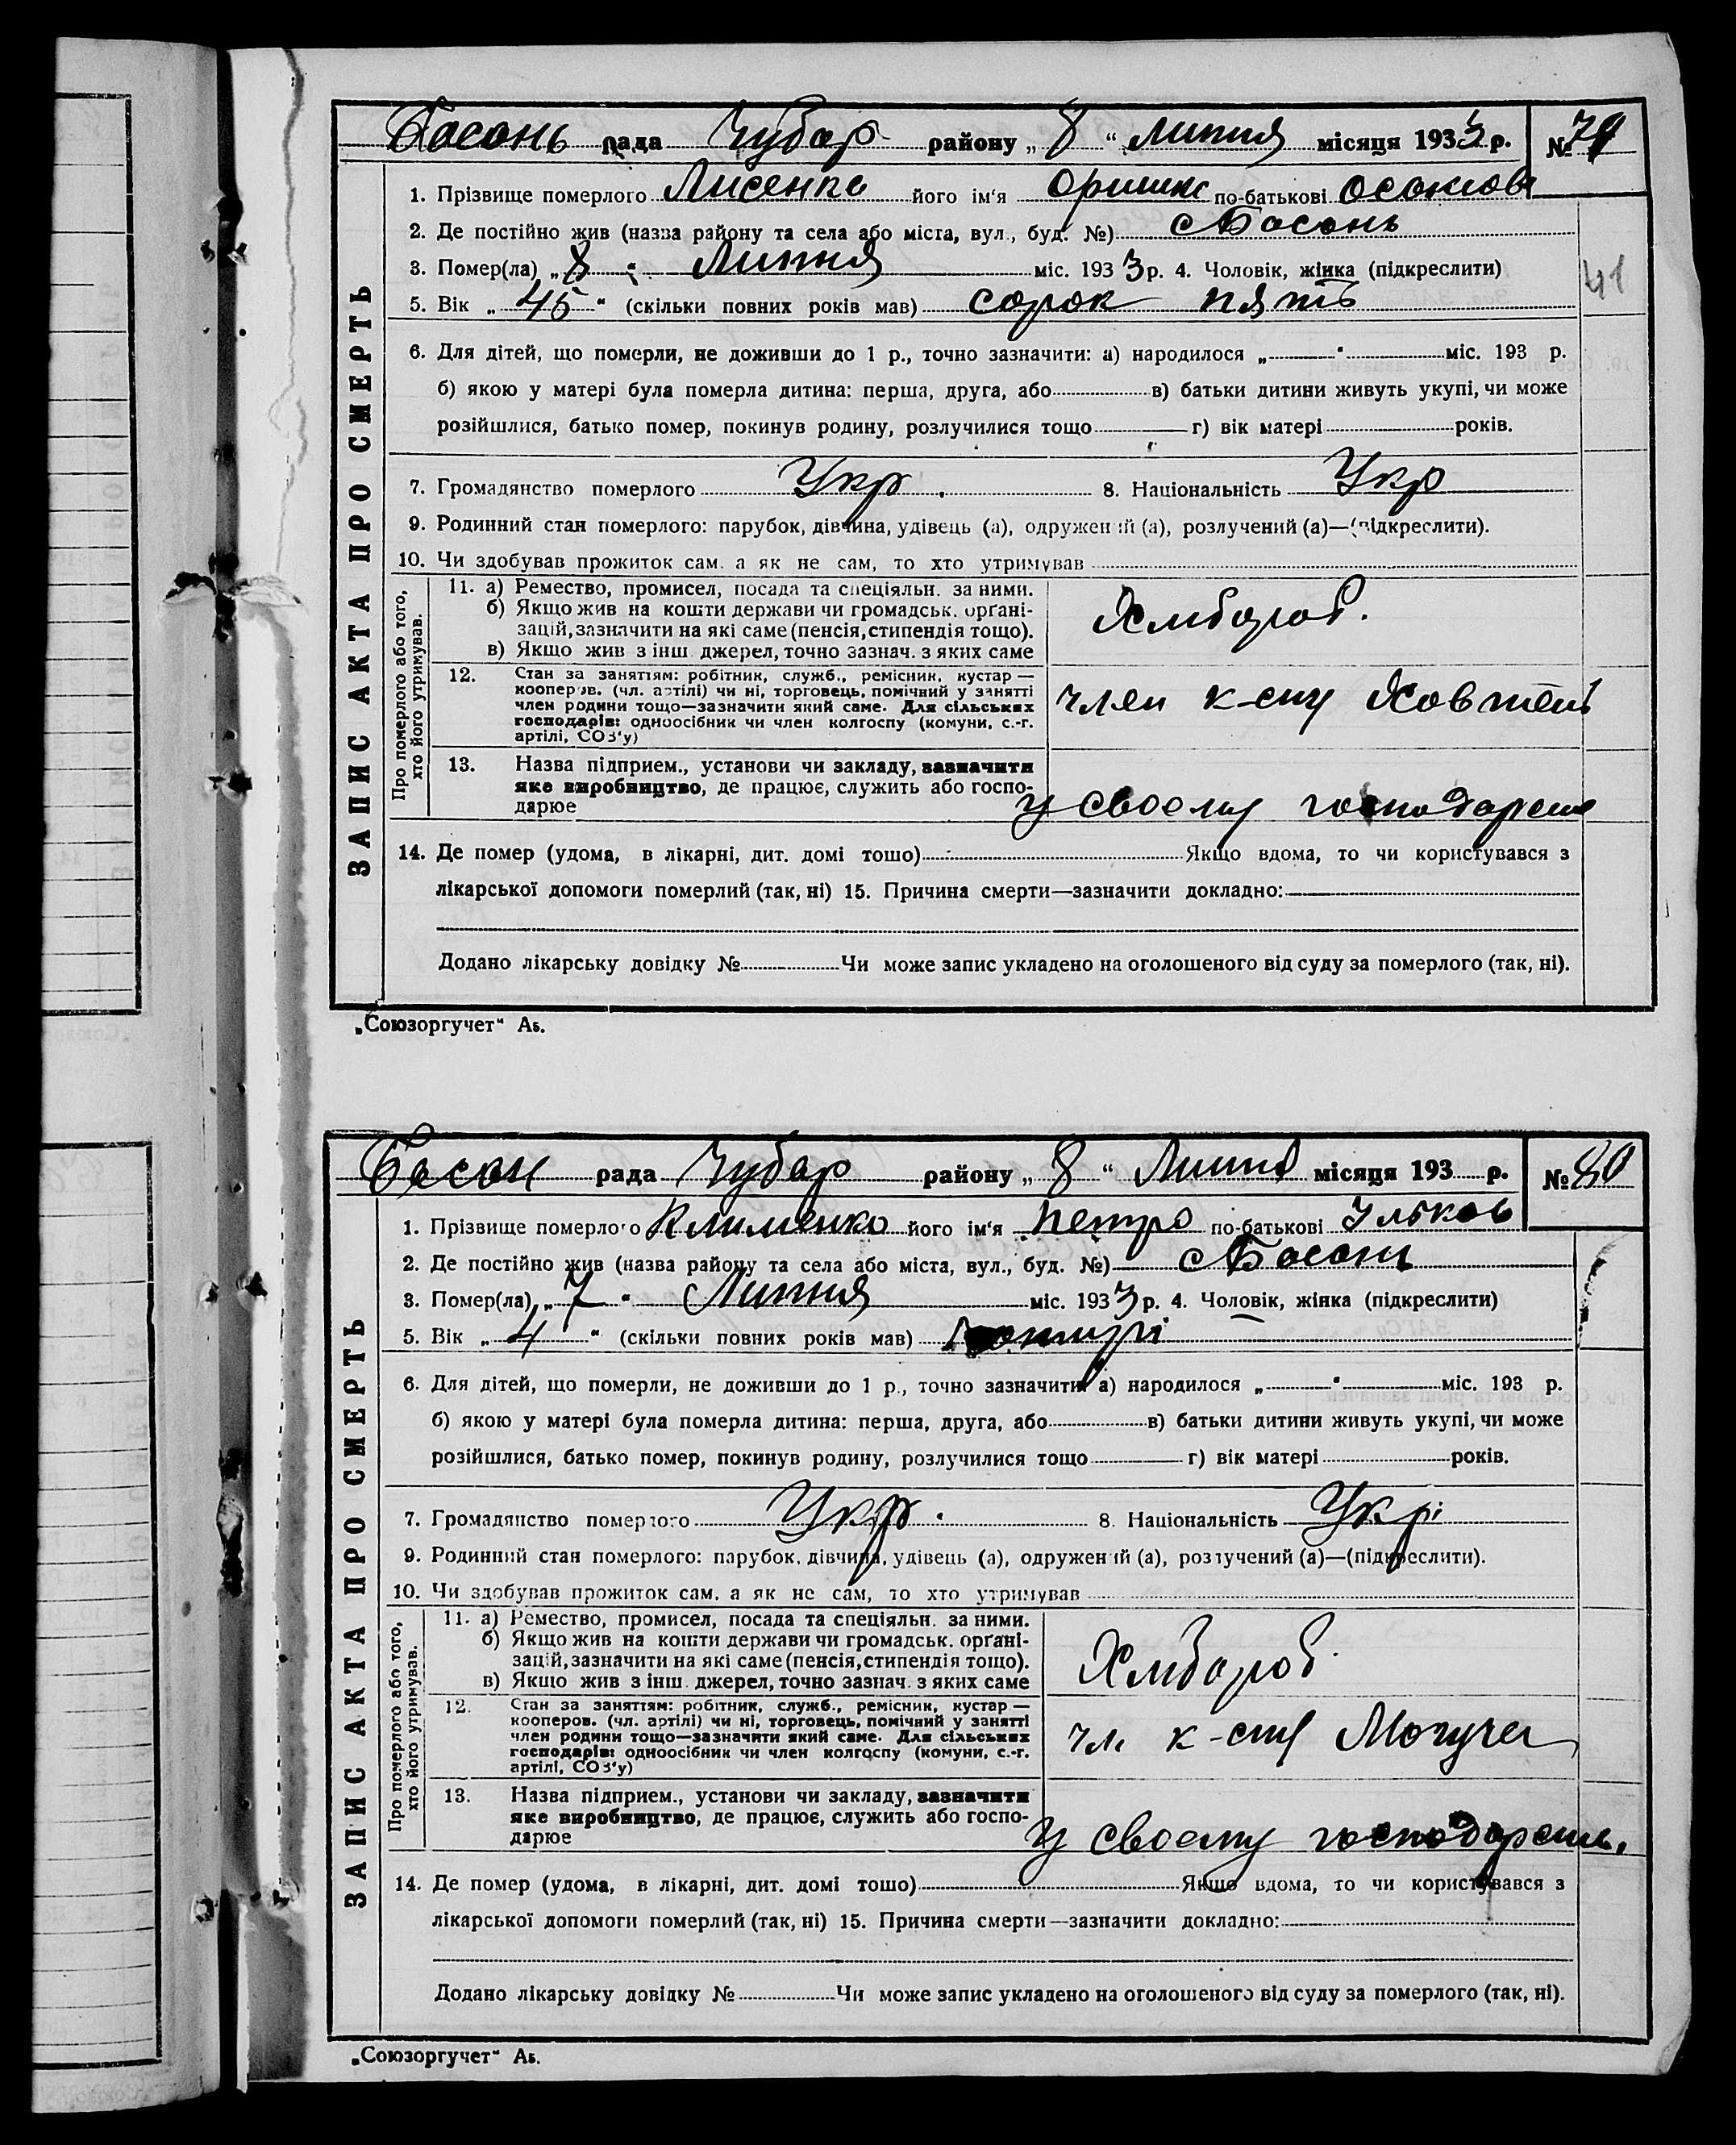 Басань рада Чубар району „8“ Липня місяця 1933 р. № 79
1. Прізвище померлого Лисенко його ім'я Оришка по-батькові
2. Де постійно жив (назва району та села або міста, вул., буд. №) с Басань
3. Помер(ла) „8“ Липня міс. 1933 р. 4. Чоловік, жінка (підкреслити)
41
5. Вік „45“ (скільки повних років мав) сорок пять
6. Для дітей, що померли, не доживши до 1 р., точно зазначити: а) народилося „ “ міс. 193 р.
б) якою у матері була померла дитина: перша, друга, або в) батьки дитини живуть укупі, чи може
розійшлися, батько помер, покинув родину, розлучилися тощо г) вік матері років.
7. Громадянство померлого Укр. 8. Національність Укр
9. Родинний стан померлого: парубок, дівчина, удівець (а), одружений (а), розлучений (а)—(підкреслити).
10. Чи здобував прожиток сам, а як не сам, то хто утримував
ЗАПИС АКТА ПРО СМЕРТЬ
Про померлого або того, хто його утримував.
11. а) Ремество, промисел, посада та спеціяльн. за ними.
б) Якщо жив на кошти держави чи громадськ. орґані-
зацій, зазначити на які саме (пенсія, стипендія тощо).
в) Якщо жив з інш. джерел, точно зазнач. з яких саме
Хліборов.
12. Стан за заняттям: робітник, служб., ремісник, кустар—
кооперов. (чл. артілі) чи ні, торговець, помічний у занятті
член родини тощо—зазначити який саме. Для сільських
господарів: одноосібник чи член колгоспу (комуни, с.-г.
артілі, СОЗ'у)
член к-спу Жовтень
13. Назва підприєм., установи чи закладу, зазначити
яке виробництво, де працює, служить або госпо-
дарює
у своєму
14. Де помер (удома, в лікарні, дит. домі тошо) Якщо вдома, то чи користувався з
лікарської допомоги померлий (так, ні) 15. Причина смерти—зазначити докладно:
Додано лікарську довідку № Чи може запис укладено на оголошеного від суду за померлого (так, ні).
„Союзоргучет“ А5.
Басан рада Чубар району „8“ Липня місяця 193 р. № 80
1. Прізвище померлого Клименко його ім'я Петро по-батькові Ільков
2. Де постійно жив (назва району та села або міста, вул., буд. №) с Басань
3. Помер(ла) „7“ Липня міс. 1933 р. 4. Чоловік, жінка (підкреслити)
5. Вік „4“ (скільки повних років мав)
6. Для дітей, що померли, не доживши до 1 р., точно зазначити: а) народилося „ “ міс. 193 р.
б) якою у матері була померла дитина: перша, друга, або в) батьки дитини живуть укупі, чи може
розійшлися, батько помер, покинув родину, розлучилися тощо г) вік матері років.
7. Громадянство померлого Укр. 8. Національність Укр
9. Родинний стан померлого: парубок, дівчина, удівець (а), одружений (а), розлучений (а)—(підкреслити).
10. Чи здобував прожиток сам, а як не сам, то хто утримував
ЗАПИС АКТА ПРО СМЕРТЬ
Про померлого або того, хто його утримував.
11. а) Ремество, промисел, посада та спеціяльн. за ними.
б) Якщо жив на кошти держави чи громадськ. орґані-
зацій, зазначити на які саме (пенсія, стипендія тощо).
в) Якщо жив з інш. джерел, точно зазнач. з яких саме
Хліборов
12. Стан за заняттям: робітник, служб., ремісник, кустар—
кооперов. (чл. артілі) чи ні, торговець, помічний у занятті
член родини тощо—зазначити який саме. Для сільських
господарів: одноосібник чи член колгоспу (комуни, с.-г.
артілі, СОЗ'у)
чл к-спу Могучен
13. Назва підприєм., установи чи закладу, зазначити
яке виробництво, де працює, служить або госпо-
дарює
у своєму
14. Де помер (удома, в лікарні, дит. домі тошо) Якщо вдома, то чи користувався з
лікарської допомоги померлий (так, ні) 15. Причина смерти—зазначити докладно:
Додано лікарську довідку № Чи може запис укладено на оголошеного від суду за померлого (так, ні).
„Союзоргучет“ А5.